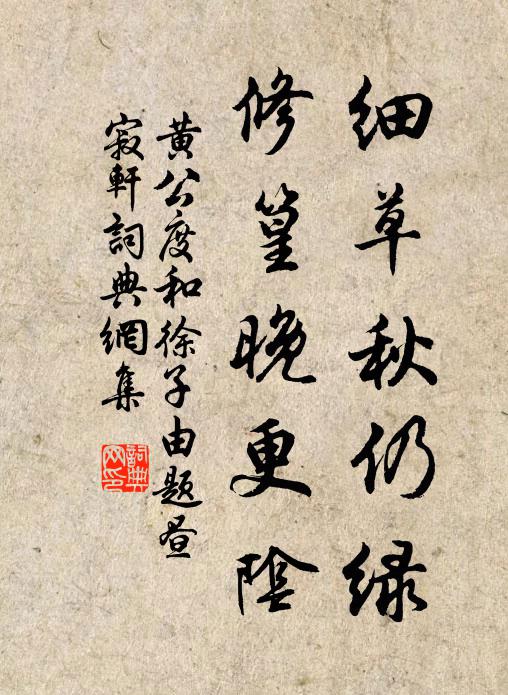 细草秋仍緑
修篁晚更陰
黄公度和徐子由題晝
寂軒詞典網集
詞典网印